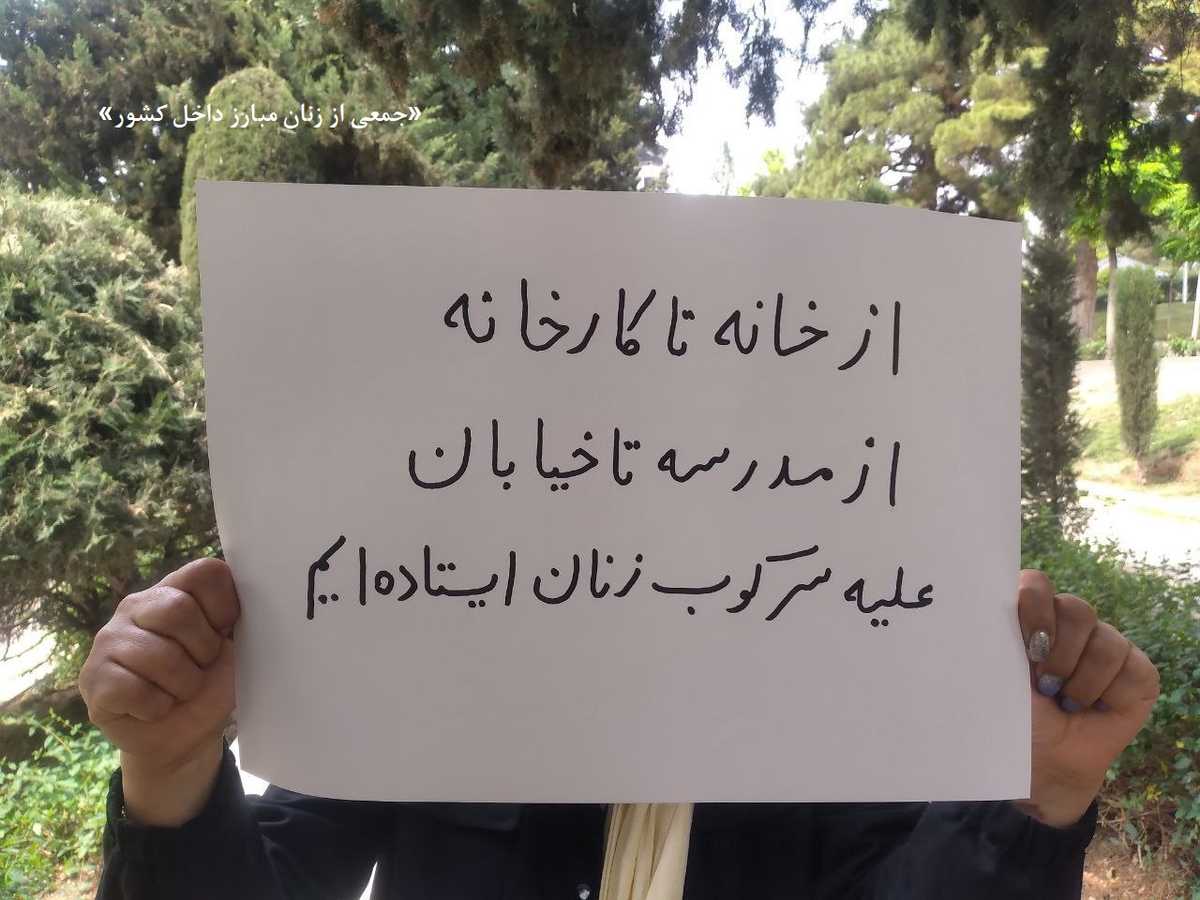 «جمعی از زنان مبارز داخل کشور»
از خانه تا کارخانه
از مدرسه تا خیابان
علیه سرکوب زنان ایستاده‌ایم